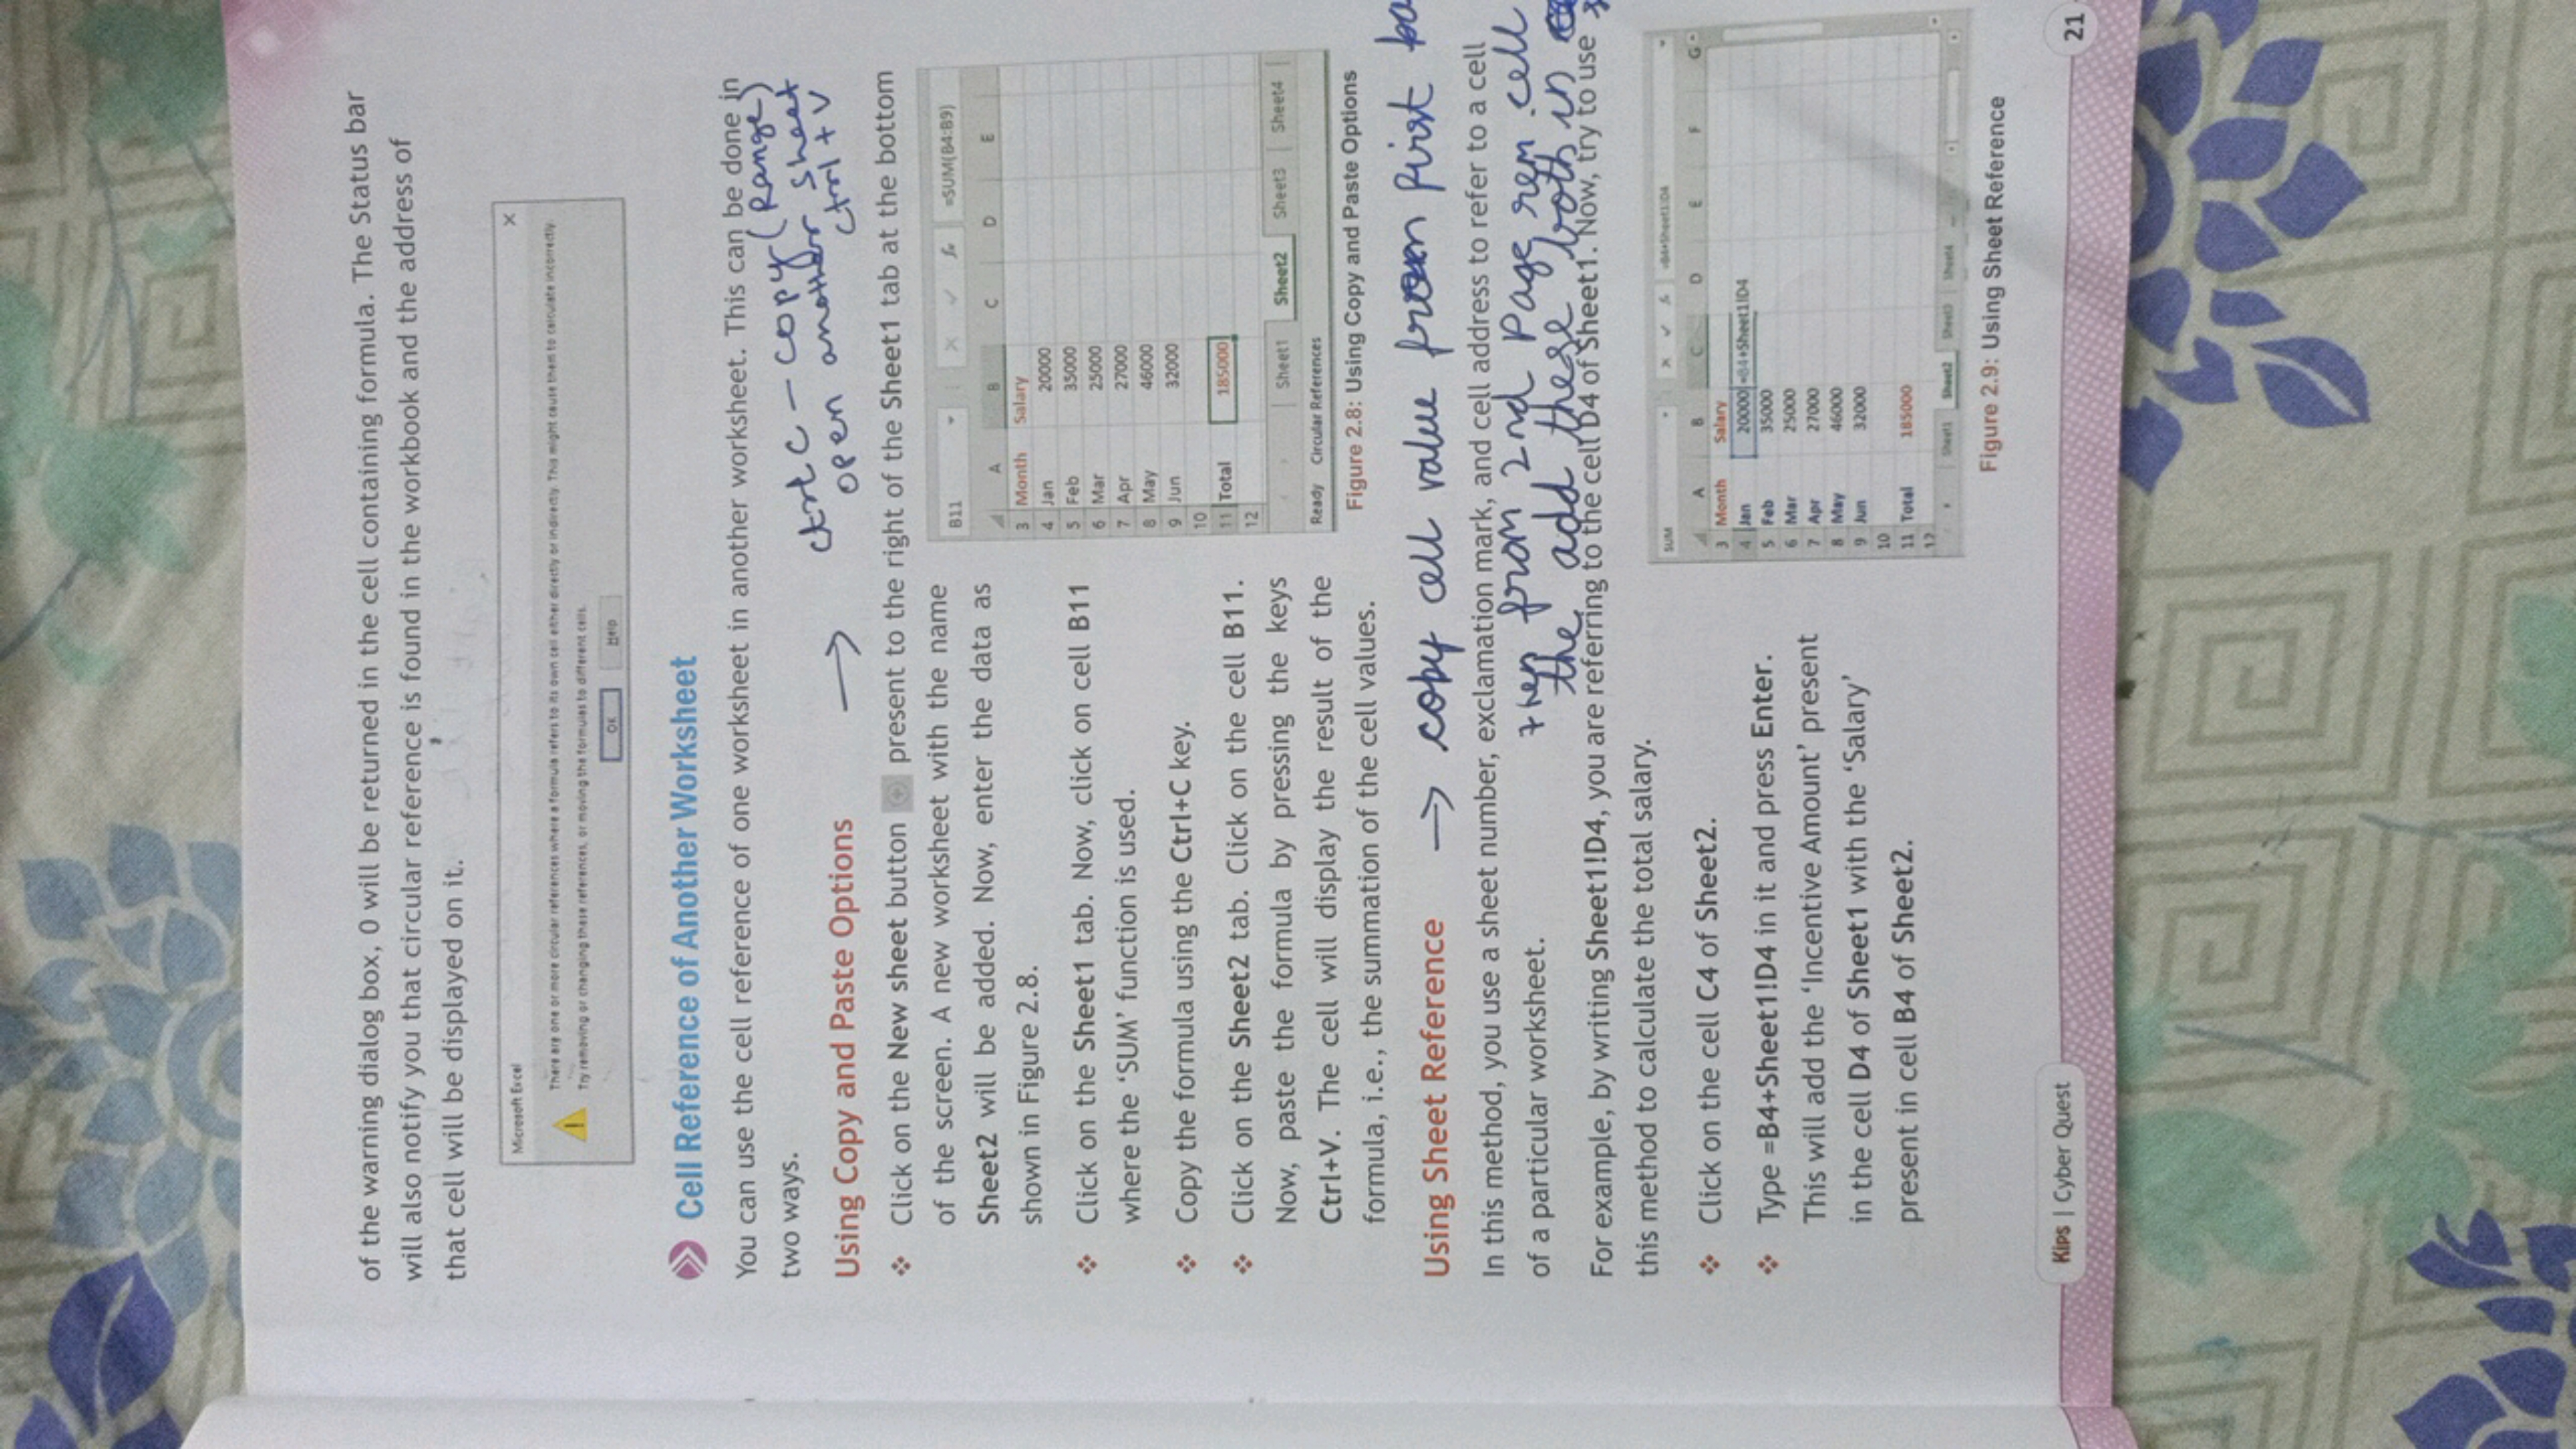 of the warning dialog box, 0 will be returned in the cell containing formula. The Status bar
will also notify you that circular reference is found in the workbook and the address of
that cell will be displayed on it.
Microsoft Excel
There are one or more circular references where a formula refers to its own cell either directly or indirectly. This might cause them to calculate incorrectly.
Try removing or changing these references, or moving the formulas to different cells.
OK Help
Cell Reference of Another Worksheet
You can use the cell reference of one worksheet in another worksheet. This can be done in
two ways.
ctrl C - copy (Range)
open another sheet
ctrl + V
Using Copy and Paste Options →
❖ Click on the New sheet button present to the right of the Sheet1 tab at the bottom
of the screen. A new worksheet with the name
Sheet2 will be added. Now, enter the data as
shown in Figure 2.8.
❖ Click on the Sheet1 tab. Now, click on cell B11
where the ‘SUM’ function is used.
❖ Copy the formula using the Ctrl+C key.
❖ Click on the Sheet2 tab. Click on the cell B11.
Now, paste the formula by pressing the keys
Ctrl+V. The cell will display the result of the
formula, i.e., the summation of the cell values.
B11 =SUM(B4:B9)
A B C D E
3 Month Salary
4 Jan 20000
5 Feb 35000
6 Mar 25000
7 Apr 27000
8 May 46000
9 Jun 32000
10
11 Total 185000
12
Sheet1 Sheet2 Sheet3 Sheet4
Ready Circular References
Figure 2.8: Using Copy and Paste Options
Using Sheet Reference → copy cell value from first
In this method, you use a sheet number, exclamation mark, and cell address to refer to a cell
of a particular worksheet.
from 2nd Page cell
the add these both in
For example, by writing Sheet1!D4, you are referring to the cell D4 of Sheet1. Now, try to use
this method to calculate the total salary.
❖ Click on the cell C4 of Sheet2.
❖ Type =B4+Sheet1!D4 in it and press Enter.
This will add the ‘Incentive Amount’ present
in the cell D4 of Sheet1 with the ‘Salary’
present in cell B4 of Sheet2.
SUM =B4+Sheet1!D4
A B C D E F G
3 Month Salary
4 Jan 20000 =B4+Sheet1!D4
5 Feb 35000
6 Mar 25000
7 Apr 27000
8 May 46000
9 Jun 32000
10
11 Total 185000
12
Sheet1 Sheet2 Sheet3 Sheet4
Figure 2.9: Using Sheet Reference
Kips | Cyber Quest
21